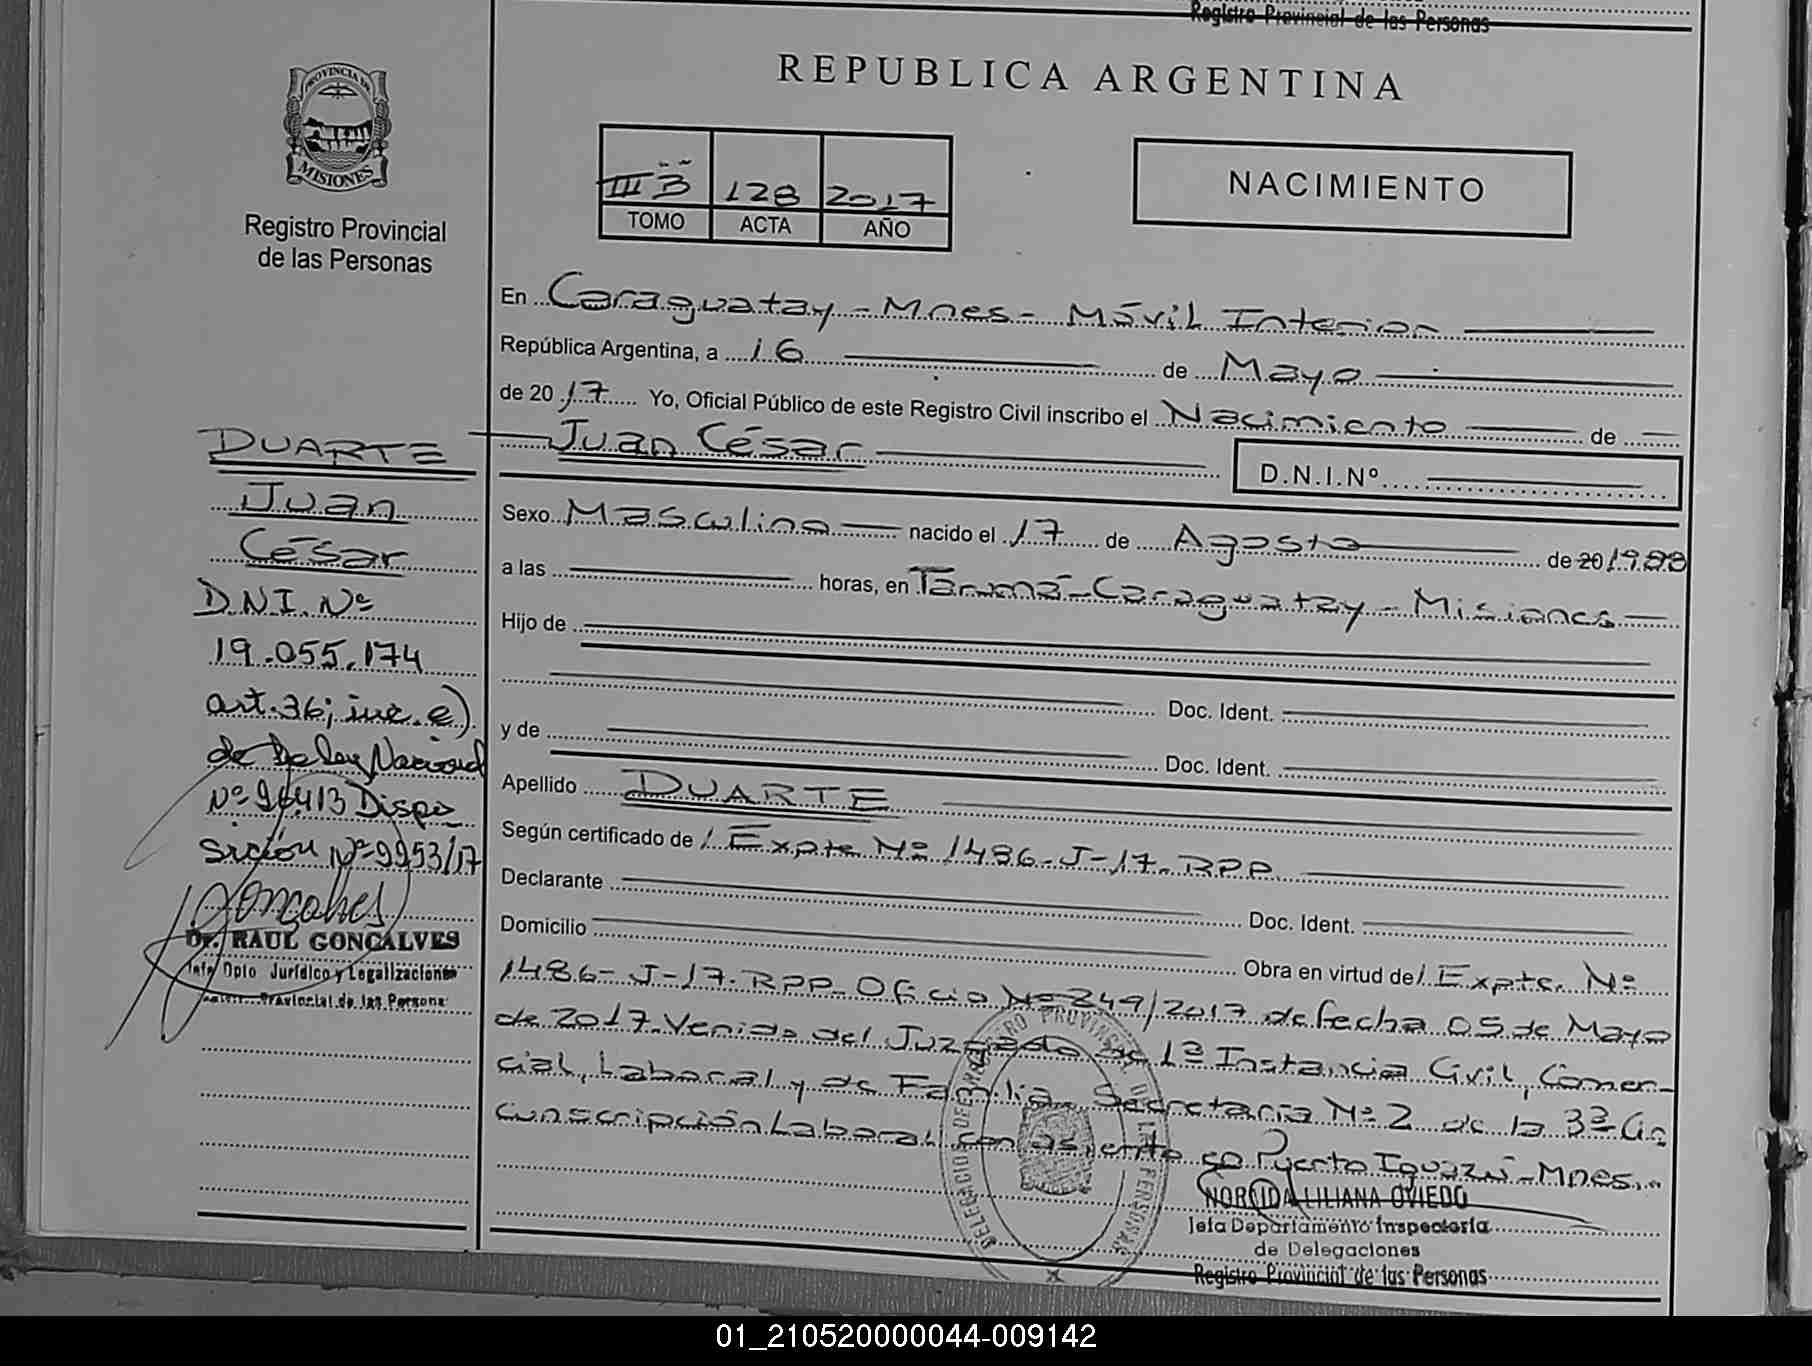 Registro Provincial de las Personas
REPUBLICA ARGENTINA
PROVINCIA DE
MISIONES
Registro Provincial
de las Personas
III B 128 2017
TOMO ACTA AÑO
NACIMIENTO
En Caraguatay - Mnes - Móvil Interior
República Argentina, a 16 de Mayo
de 2017 Yo, Oficial Público de este Registro Civil inscribo el Nacimiento de
Juan César D.N.I.Nº
Sexo Masculino nacido el 17 de Agosto de 20 1988
a las horas, en Tarumá - Caraguatay - Misiones
Hijo de
Doc. Ident.
y de
Doc. Ident.
Apellido DUARTE
Según certificado de / Expte Nº 1486-J-17. RPP
Declarante Doc. Ident.
Domicilio Obra en virtud de / Expte. Nº
1486-J-17. RPP. Oficio Nº 249/2017 de fecha 05 de Mayo
de 2017. Venido del Juzgado de 1ª Instancia Civil, Comer-
cial, Laboral y de Familia Secretaría Nº 2 de la 3ª Cir
cunscripción Laboral con asiento en Puerto Iguazú - Mnes.
NORCIDA LILIANA OVIEDO
Jefa Departamento Inspectoría
de Delegaciones
Registro Provincial de las Personas
DUARTE
Juan
César
D.N.I. Nº
19.055.174
art. 36; inc. e)
de la Ley Nacional
Nº 26413 Dispo
sición Nº 9953/17
Dr. RAUL GONCALVES
Jefe Dpto Jurídico y Legalizaciones
Provincial de las Persona
01_210520000044-009142